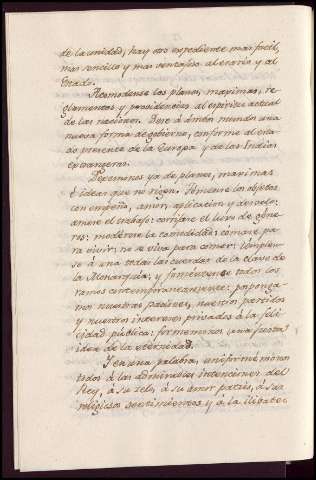 de la unidad, hay otro expediente mas facil,
mas sencillo y mas ventajoso al erario y al
Estado.
Acomodense los planes, maximas, re-
glamentos y providencias al espiritu actual
de las naciones. Dese á ántón mundo una
nueva forma de gobierno, conforme al esta-
do presente de la Europa y de las Indias
extrangeras.
Dexemonos yá de planes, maximas
é ideas que no rigen. Tomense los objetos
con empeño, amor, aplicacion y desvelo:
amese el trabajo: corrijase el luxo de gene-
ros: moderese la comodidad: comase pa-
ra vivir; no se viva para comer: templen-
se á una todas las cuerdas de la clave de
la Monarquía; y fomentense todos los
ramos contemporaneamente: pospongá-
mos nuestras pasiones, nuestros partidos
y nuestros intereses privados á la feli-
cidad pública: formemonos una justa
idea de la eternidad.
Y en una palabra, uniformemonos
todos á las admirables intenciones del
Rey, á su zelo, á su amor patrio, á sus
religiosos sentimientos y á la ilustra-